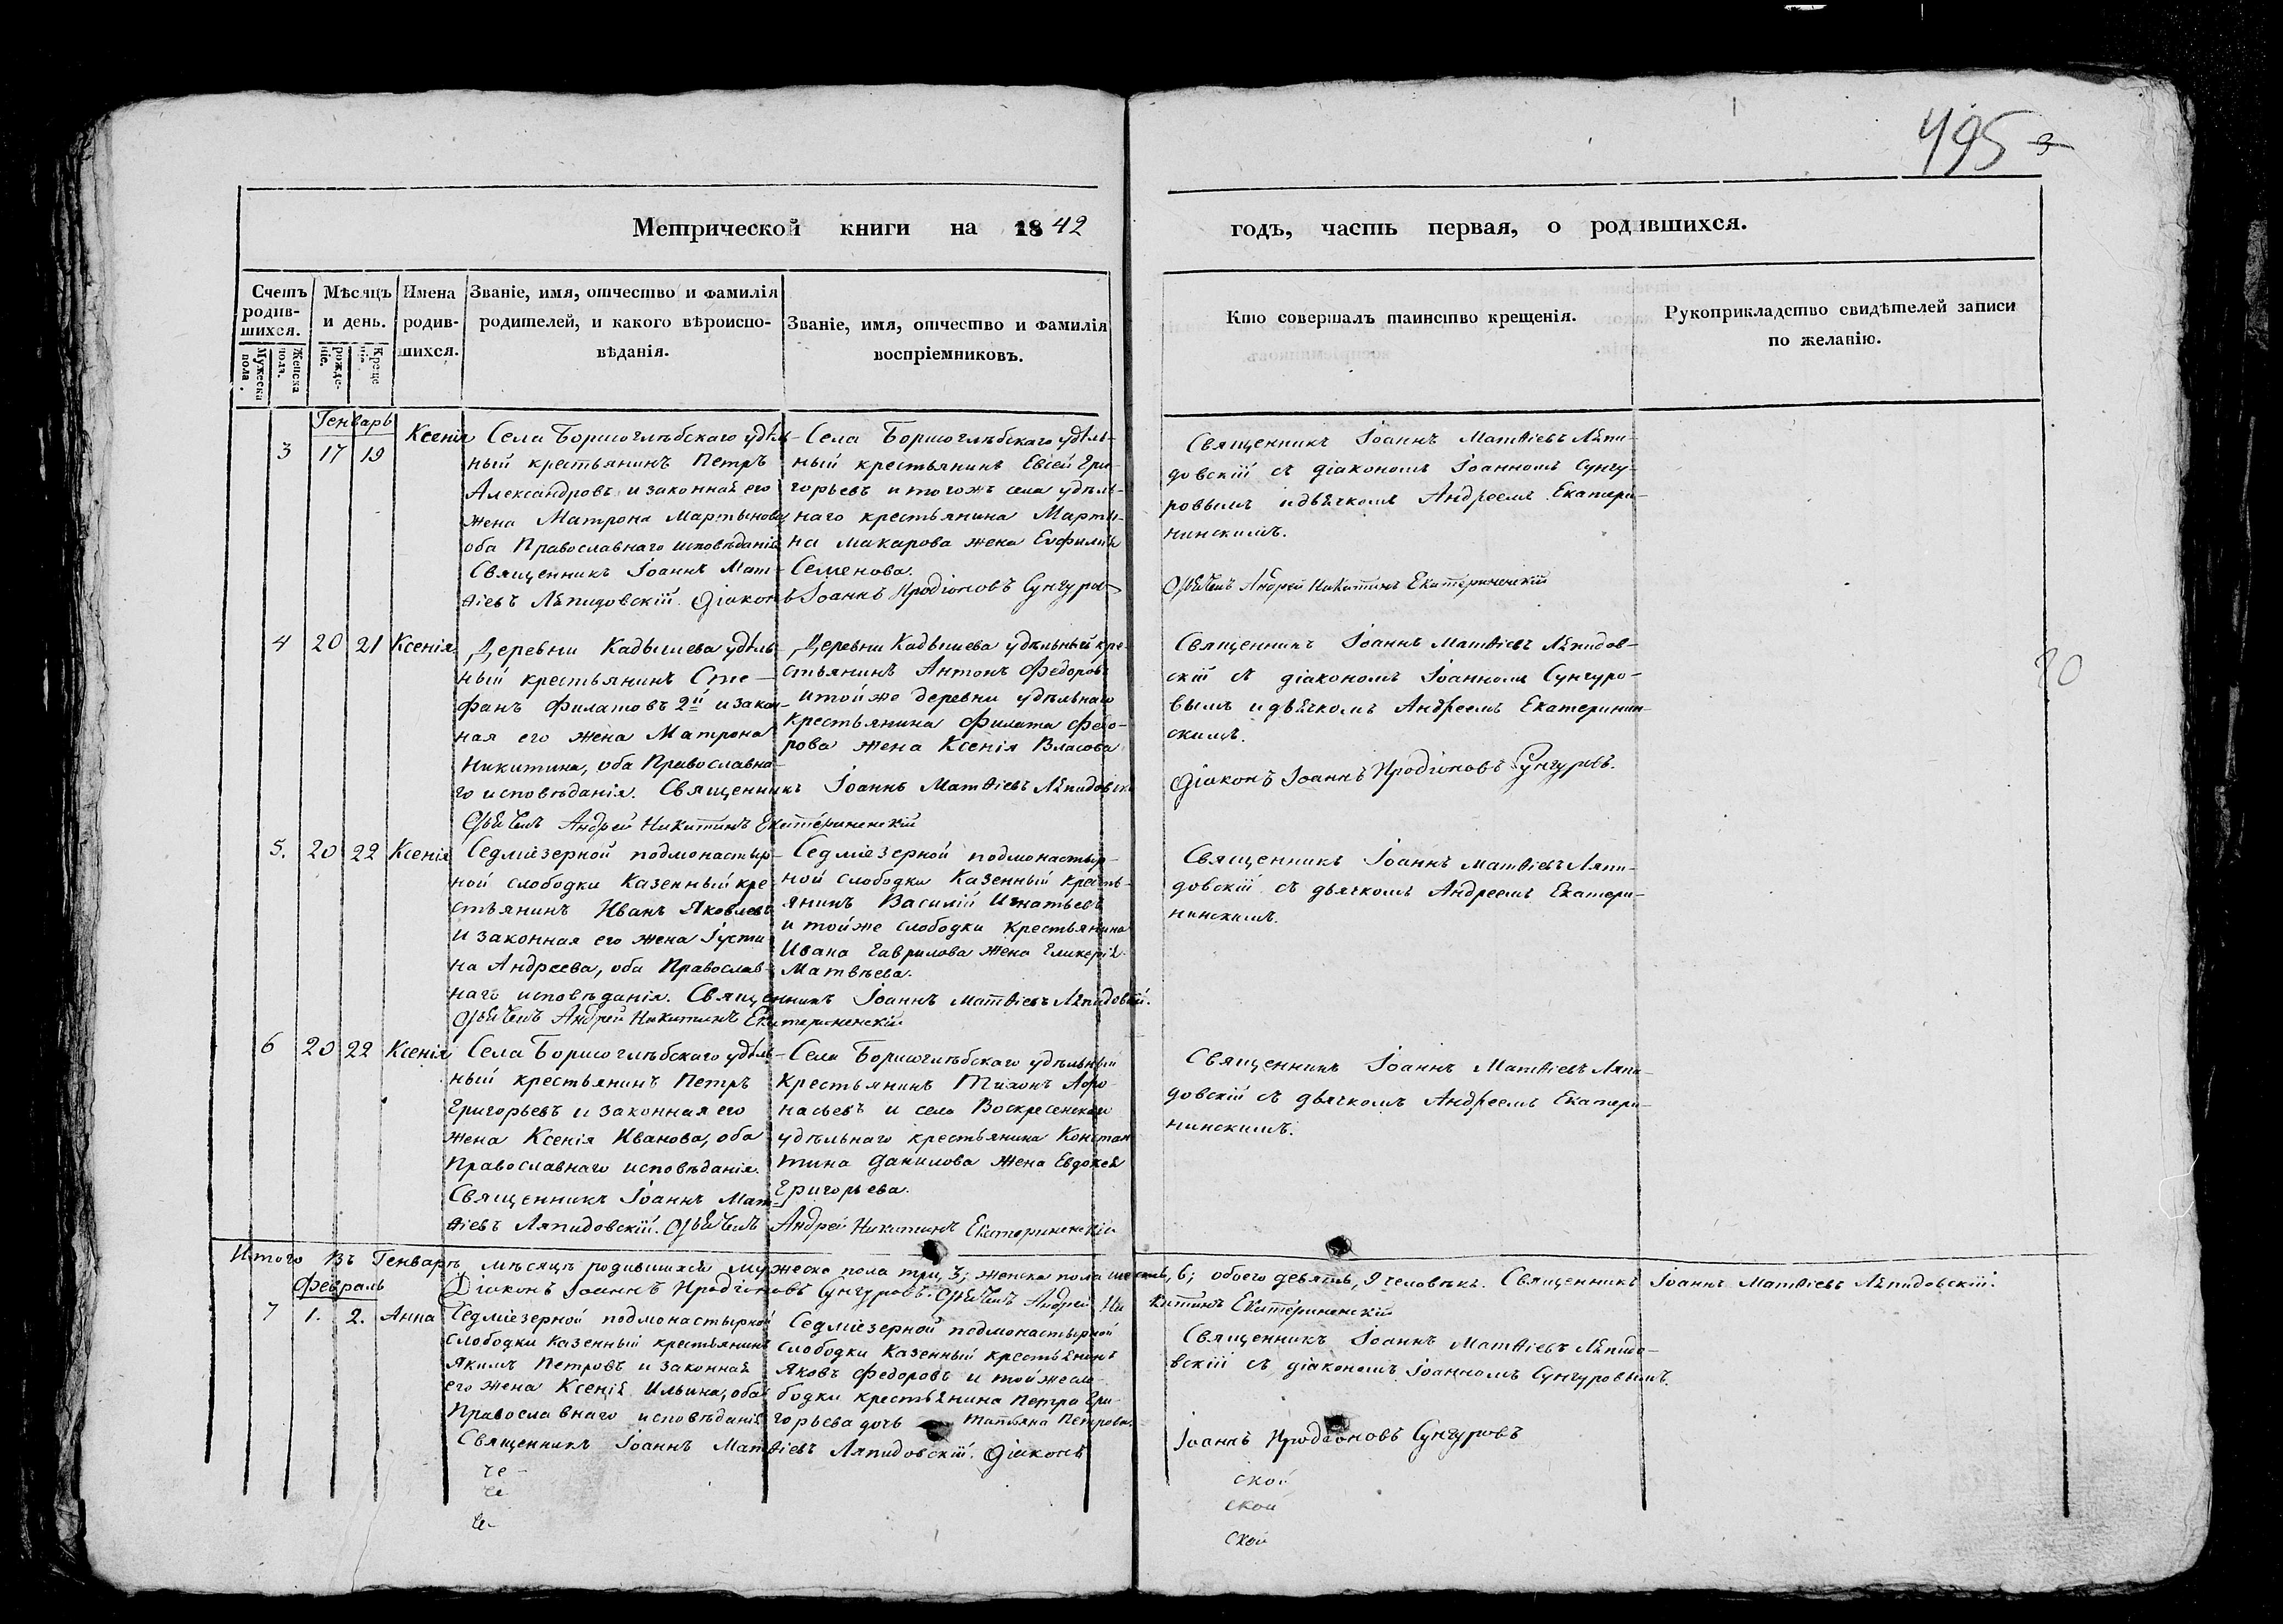 495 3
Метрической книги на 1842
годъ, часть первая, о родившихся.
Счетъ родив-шихся.
Мужеска пола.
Женска пола.
Мѣсяцъ и день.
рожде-нія.
креще-нія.
Имена родив-шихся.
Званіе, имя, отчество и фамилія
родителей, и какого вѣроиспо-
вѣданія.
Званіе, имя, отчество и фамилія
воспріемниковъ.
Кто совершалъ таинство крещенія.
Рукоприкладство свидѣтелей записи
по желанію.
Генварь
3 17 19 Ксенія
Села Борисоглѣбскаго удѣль-
ный крестьянинъ Петръ
Александровъ и законная его
жена Матрона Мартынова
оба Православнаго исповѣданія
Священникъ Іоаннъ Мат-
ѳіевъ Ляпидовскій. Діаконъ Іоаннъ Иродіоновъ Сунгуровъ
Села Борисоглѣбскаго удѣль-
ный крестьянинъ Евсей Гри-
горьевъ и тогожъ села удѣль-
наго крестьянина Марты-
на Макарова жена Евфимія
Семенова.
Священникъ Іоаннъ Матѳіевъ Ляпи-
довскій съ діакономъ Іоанномъ Сунгу-
ровымъ и дьячкомъ Андреемъ Екатери-
нинскимъ.
Дьячекъ Андрей Никитинъ Екатерининскій
4 20 21 Ксенія
Деревни Кадышева удѣль-
ный крестьянинъ Сте-
фанъ Филатовъ 2й и закон-
ная его жена Матрона
Никитина, оба Православна-
го исповѣданія. Священникъ Іоаннъ Матѳіевъ Ляпидовскій
Дьячекъ Андрей Никитинъ Екатерининскій
Деревни Кадышева удѣльный кре-
стьянинъ Антонъ Федоровъ
и тойже деревни удѣльнаго
крестьянина Филата Федо-
рова жена Ксенія Власова
Священникъ Іоаннъ Матѳіевъ Ляпидов-
скій съ діакономъ Іоанномъ Сунгуро-
вымъ и дьячкомъ Андреемъ Екатеринин-
скимъ.
Діаконъ Іоаннъ Иродіоновъ Сунгуровъ.
5. 20 22 Ксенія
Седміезерной подмонастыр-
ной слободки Казенный кре-
стьянинъ Иванъ Яковлевъ
и законная его жена Іусти-
на Андреева, оба Православ-
наго исповѣданія. Священникъ Іоаннъ Матѳіевъ Ляпидовскій.
Дьячекъ Андрей Никитинъ Екатерининскій
Седміезерной подмонастыр-
ной слободки Казенный кресть-
янинъ Василій Игнатьевъ
и тойже слободки крестьянина
Ивана Гаврилова жена Гликерія
Матвѣева.
Священникъ Іоаннъ Матѳіевъ Ляпи-
довскій съ дьячкомъ Андреемъ Екатери-
нинскимъ.
6 20 22 Ксенія
Села Борисоглѣбскаго удѣль-
ный крестьянинъ Петръ
Григорьевъ и законная его
жена Ксенія Иванова, оба
Православнаго исповѣданія.
Священникъ Іоаннъ Мат-
ѳіевъ Ляпидовскій. Дьячекъ Андрей Никитинъ Екатерининскій
Села Борисоглѣбскаго удѣльный
крестьянинъ Тихонъ Афо-
насьевъ и села Воскресенскаго
удѣльнаго крестьянина Констан
тина Данилова жена Евдокея
Григорьева.
Священникъ Іоаннъ Матѳіевъ Ляпи-
довскій съ дьячкомъ Андреемъ Екатери-
нинскимъ.
Итого въ Генварѣ мѣсяцѣ родившихся мужеска пола три, 3; женска пола шесть, 6; обоего девять, 9 человѣкъ. Священникъ Іоаннъ Матѳіевъ Ляпидовскій.
Діаконъ Іоаннъ Иродіоновъ Сунгуровъ. Дьячекъ Андрей Никитинъ Екатерининскій
Февраль
7 1. 2. Анна
Седміезерной подмонастырной
слободки казенный крестьянинъ
Якимъ Петровъ и законная
его жена Ксенія Ильина, оба
Православнаго исповѣданія
Священникъ Іоаннъ Матѳіевъ Ляпидовскій. Діаконъ
Седміезерной подмонастырной
слободки Казенный крестьянинъ
Яковъ Федоровъ и тойже сло-
бодки крестьянина Петра Гри-
горьева дочь Татьяна Петрова.
Священникъ Іоаннъ Матѳіевъ Ляпидо-
вскій съ діакономъ Іоанномъ Сунгуровымъ.
Іоаннъ Иродіоновъ Сунгуровъ
че-
че
че-
ской
ской
ской